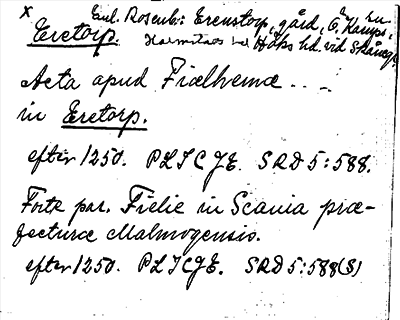 x Enl. Rosenb: Erenstorp, gård, Ö. Kamps,
Eretorp. Halmstads hd Höks hd. vid Skånegr.
Acta apud Fiælhemæ ....
in Eretorp.
efter 1250. PLTCJE. SRD 5:588.
Forte par. Fielie in Scania præ-
fecturæ Malmogensis.
efter 1250. PLTCJE. SRD 5:588(S)